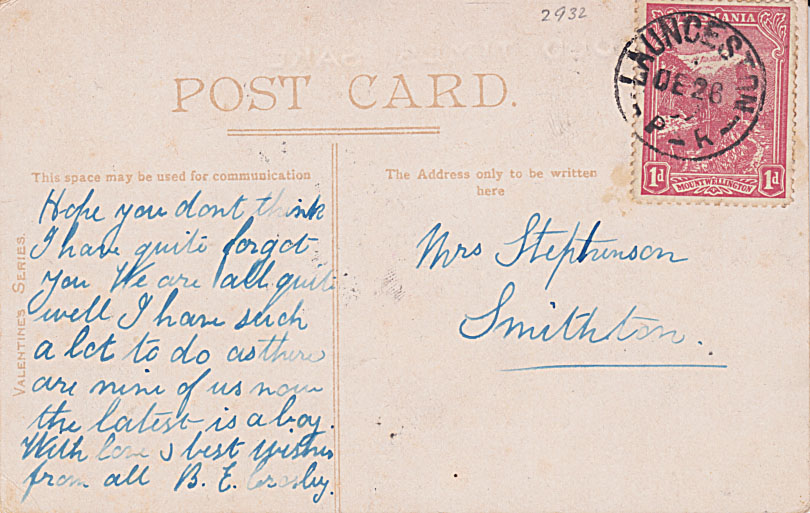 2932
TASMANIA
LAUNCESTON
DE 26
1d
MOUNT WELLINGTON
1d
POST CARD.
This space may be used for communication
The Address only to be written
here
VALENTINES SERIES.
Hope you dont think
I have quite forgot
you We are all quite
well I have such
a lot to do as there
are nine of us now
the latest is a boy.
With love & best wishes
from all B. E. Crosby.
Mrs Stephenson
Smithton.